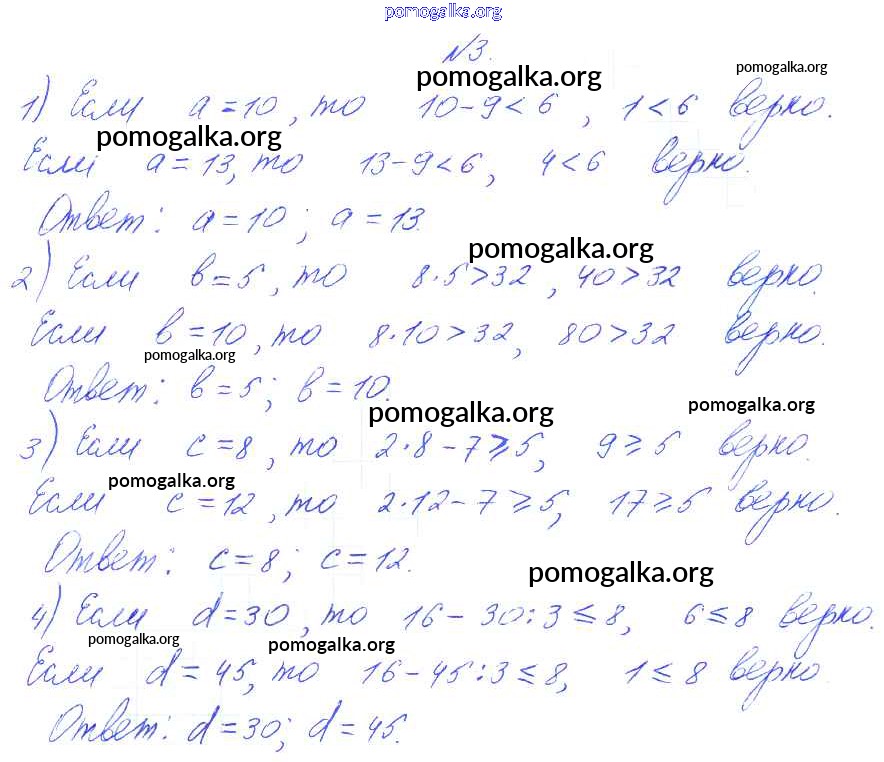 pomogalka.org
№3.
pomogalka.org pomogalka.org
1) Если a=10, то 10-9<6, 1<6 верно.
pomogalka.org
Если a=13, то 13-9<6, 4<6 верно.
Ответ: a=10; a=13.
pomogalka.org
2) Если b=5, то 8·5>32, 40>32 верно.
Если b=10, то 8·10>32, 80>32 верно.
pomogalka.org
Ответ: b=5; b=10.
pomogalka.org pomogalka.org
3) Если c=8, то 2·8-7≥5, 9≥5 верно.
pomogalka.org
Если c=12, то 2·12-7≥5, 17≥5 верно.
Ответ: c=8; c=12.
pomogalka.org
4) Если d=30, то 16-30:3≤8, 6≤8 верно.
pomogalka.org pomogalka.org
Если d=45, то 16-45:3≤8, 1≤8 верно.
Ответ: d=30; d=45.